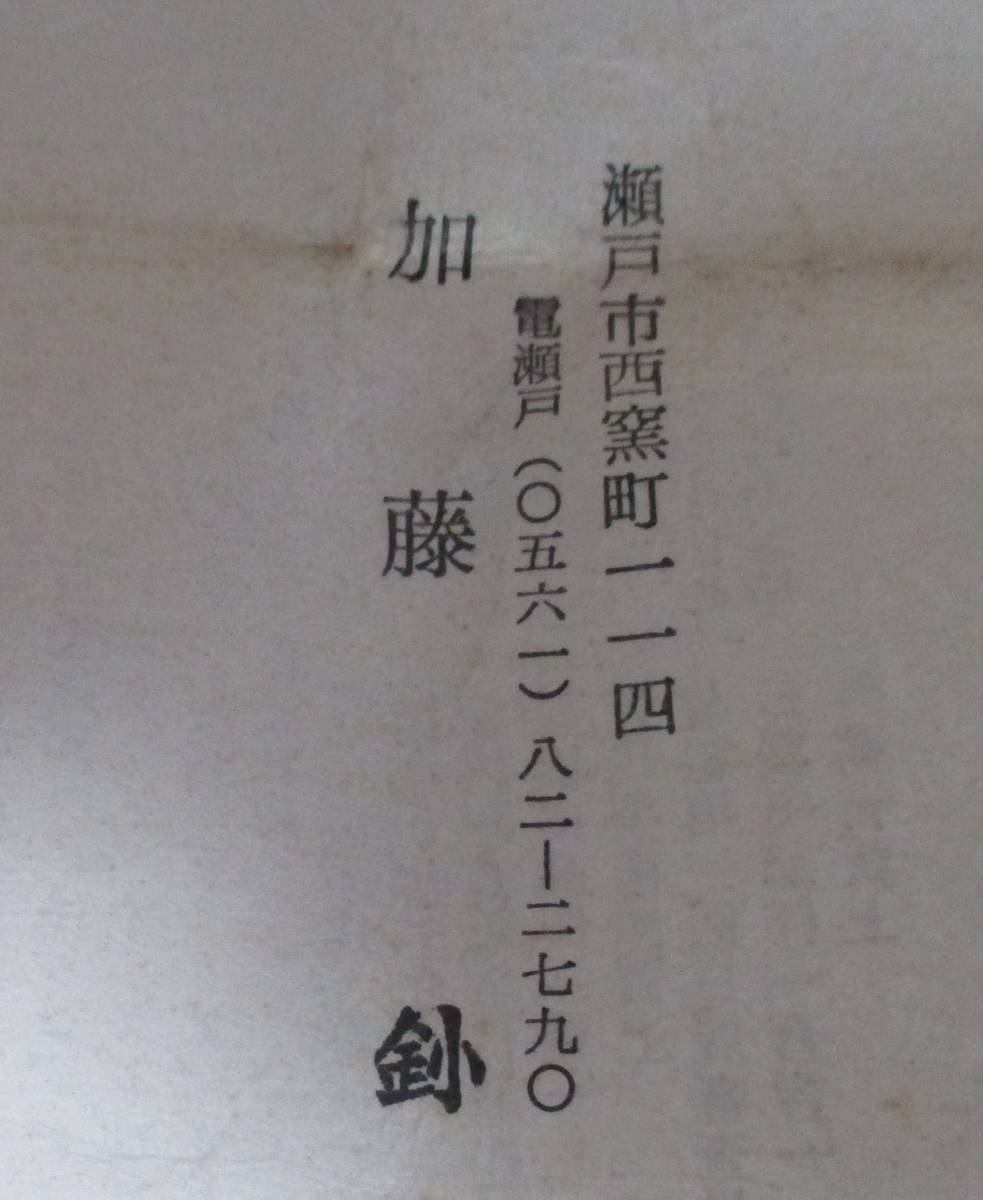 瀬戸市西窯町一一四
電瀬戸（〇五六一）八二ー二七九〇
加藤釥